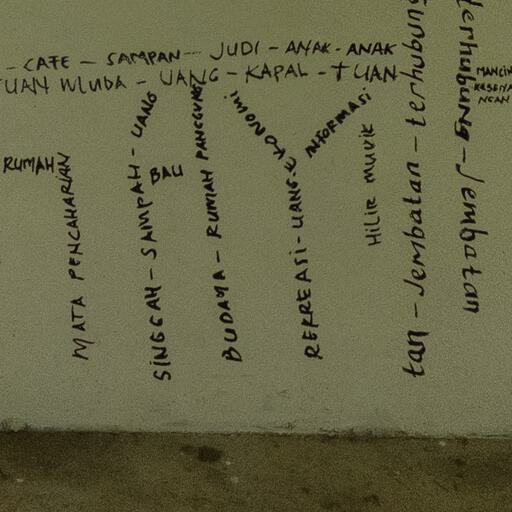 - CAFE - SAMPAN - JUDI - ANAK - ANAK
TUAN MUDA - UANG - KAPAL - TUAN
RUMAH
MATA PENCAHARIAN
SINGGAH - SAMPAH - UANG
BAU
BUDAYA - RUMAH PANGGUNG
REKREASI - UANG - EKONOMI
INFORMASI
HILIR MUDIK
tan - Jembatan - terhubung
terhubung - Jembatan